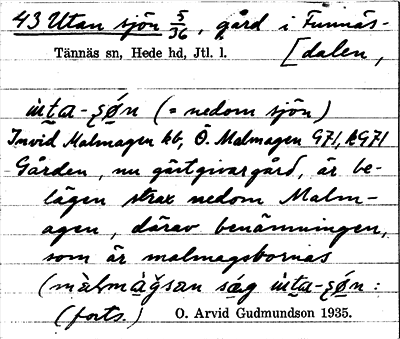 43 Utan sjön 5/36, gård i Funnäs-
[dalen,
Tännäs sn, Hede hd, Jtl. l.
ùta-ʂøn (= nedom sjön)
Invid Malmagen kb, Ö. Malmagen 971,
Gården, nu gästgivargård, är be-
lägen strax nedom Malm-
agen, därav benämningen,
som är malmagsbornas
(màlmàgsan sæg ùta-ʂøn :
(forts.) O. Arvid Gudmundson 1935.